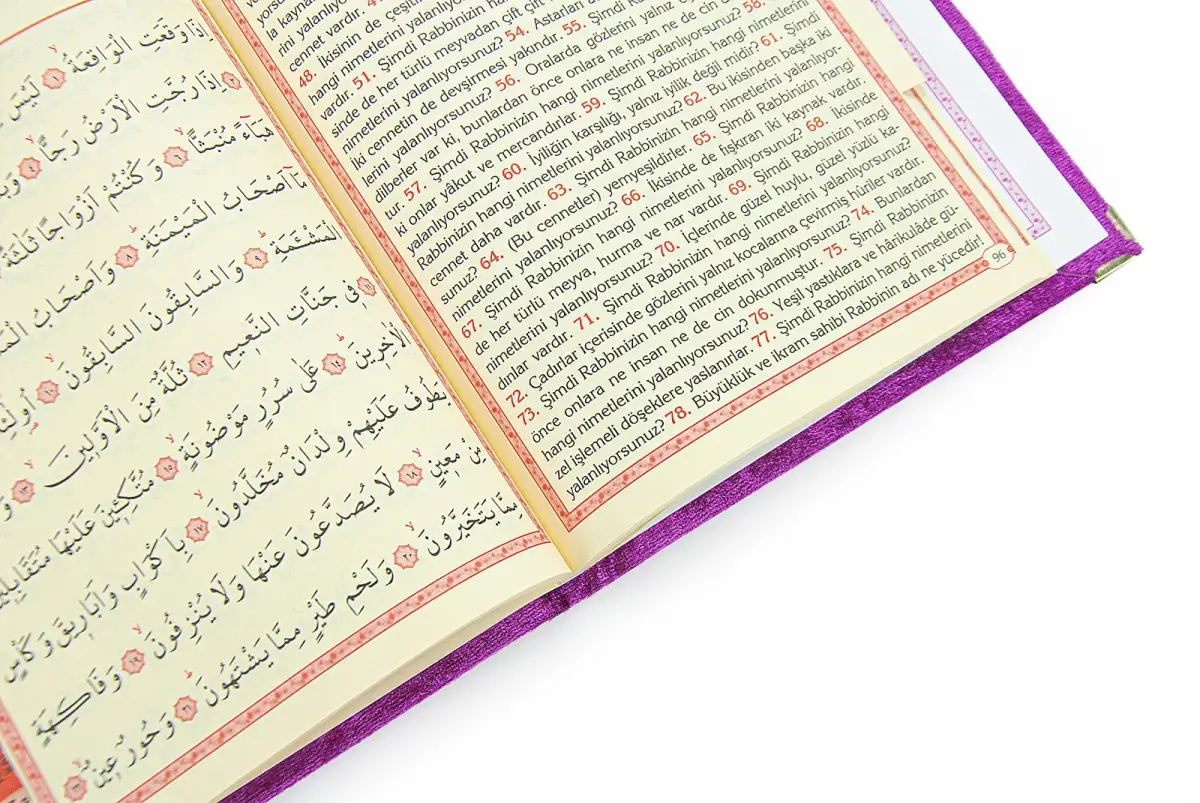 la kaynar
cennet vardır.
48. İkisinin de çeşit
hangi nimetlerini yalanlıyor
vardır. 51. Şimdi Rabbinizin
sinde de her türlü meyvadan çift çift
nimetlerini yalanlıyorsunuz? 54. Astarları
iki cennetin de devşirmesi yakındır. 55. Şimdi
lerini yalanlıyorsunuz? 56. Oralarda gözlerini yalnız
dilberler var ki, bunlardan önce onlara ne insan ne de cin
tur. 57. Şimdi Rabbinizin hangi nimetlerini yalanlıyorsunuz? 58.
ki onlar yâkut ve mercandırlar. 59. Şimdi Rabbinizin hangi nimetlerini
yalanlıyorsunuz? 60. İyiliğin karşılığı, yalnız iyilik değil midir? 61. Şimdi
Rabbinizin hangi nimetlerini yalanlıyorsunuz? 62. Bu ikisinden başka iki
cennet daha vardır. 63. Şimdi Rabbinizin hangi nimetlerini yalanlıyor-
sunuz? 64. (Bu cennetler) yemyeşildirler. 65. Şimdi Rabbinizin hangi
nimetlerini yalanlıyorsunuz? 66. İkisinde de fışkıran iki kaynak vardır.
67. Şimdi Rabbinizin hangi nimetlerini yalanlıyorsunuz? 68. İkisinde
de her türlü meyva, hurma ve nar vardır. 69. Şimdi Rabbinizin hangi
nimetlerini yalanlıyorsunuz? 70. İçlerinde güzel huylu, güzel yüzlü ka-
dınlar vardır. 71. Şimdi Rabbinizin hangi nimetlerini yalanlıyorsunuz?
72. Çadırlar içerisinde gözlerini yalnız kocalarına çevirmiş hûriler vardır.
73. Şimdi Rabbinizin hangi nimetlerini yalanlıyorsunuz? 74. Bunlardan
önce onlara ne insan ne de cin dokunmuştur. 75. Şimdi Rabbinizin
hangi nimetlerini yalanlıyorsunuz? 76. Yeşil yastıklara ve hârikulâde gü-
zel işlemeli döşeklere yaslanırlar. 77. Şimdi Rabbinizin hangi nimetlerini
yalanlıyorsunuz? 78. Büyüklük ve ikram sahibi Rabbinin adı ne yücedir!
96
اِذَا وَقَعَتِ الْوَاقِعَةُ ١ لَيْسَ
٣ اِذَا رُجَّتِ الْاَرْضُ رَجًّا ٤
هَبَاءً مُنْبَثًّا ٦ وَكُنْتُمْ اَزْوَاجًا ثَلٰثَةً
مَا اَصْحَابُ الْمَيْمَنَةِ ٨ وَاَصْحَابُ
الْمَشْئَمَةِ ٩ وَالسَّابِقُونَ السَّابِقُونَ ١٠ اُولٰئِكَ
١١ فِى جَنَّاتِ النَّعِيمِ ١٢ ثُلَّةٌ مِنَ الْاَوَّلِينَ ١٣
الْاٰخِرِينَ ١٤ عَلٰى سُرُرٍ مَوْضُونَةٍ ١٥ مُتَّكِئِينَ عَلَيْهَا مُتَقَابِلِينَ
يَطُوفُ عَلَيْهِمْ وِلْدَانٌ مُخَلَّدُونَ ١٧ بِاَكْوَابٍ وَاَبَارِيقَ وَكَأْسٍ
مِنْ مَعِينٍ ١٨ لَا يُصَدَّعُونَ عَنْهَا وَلَا يُنْزِفُونَ ١٩ وَفَاكِهَةٍ
مِمَّا يَتَخَيَّرُونَ ٢٠ وَلَحْمِ طَيْرٍ مِمَّا يَشْتَهُونَ ٢١ وَحُورٌ عِينٌ ٢٢